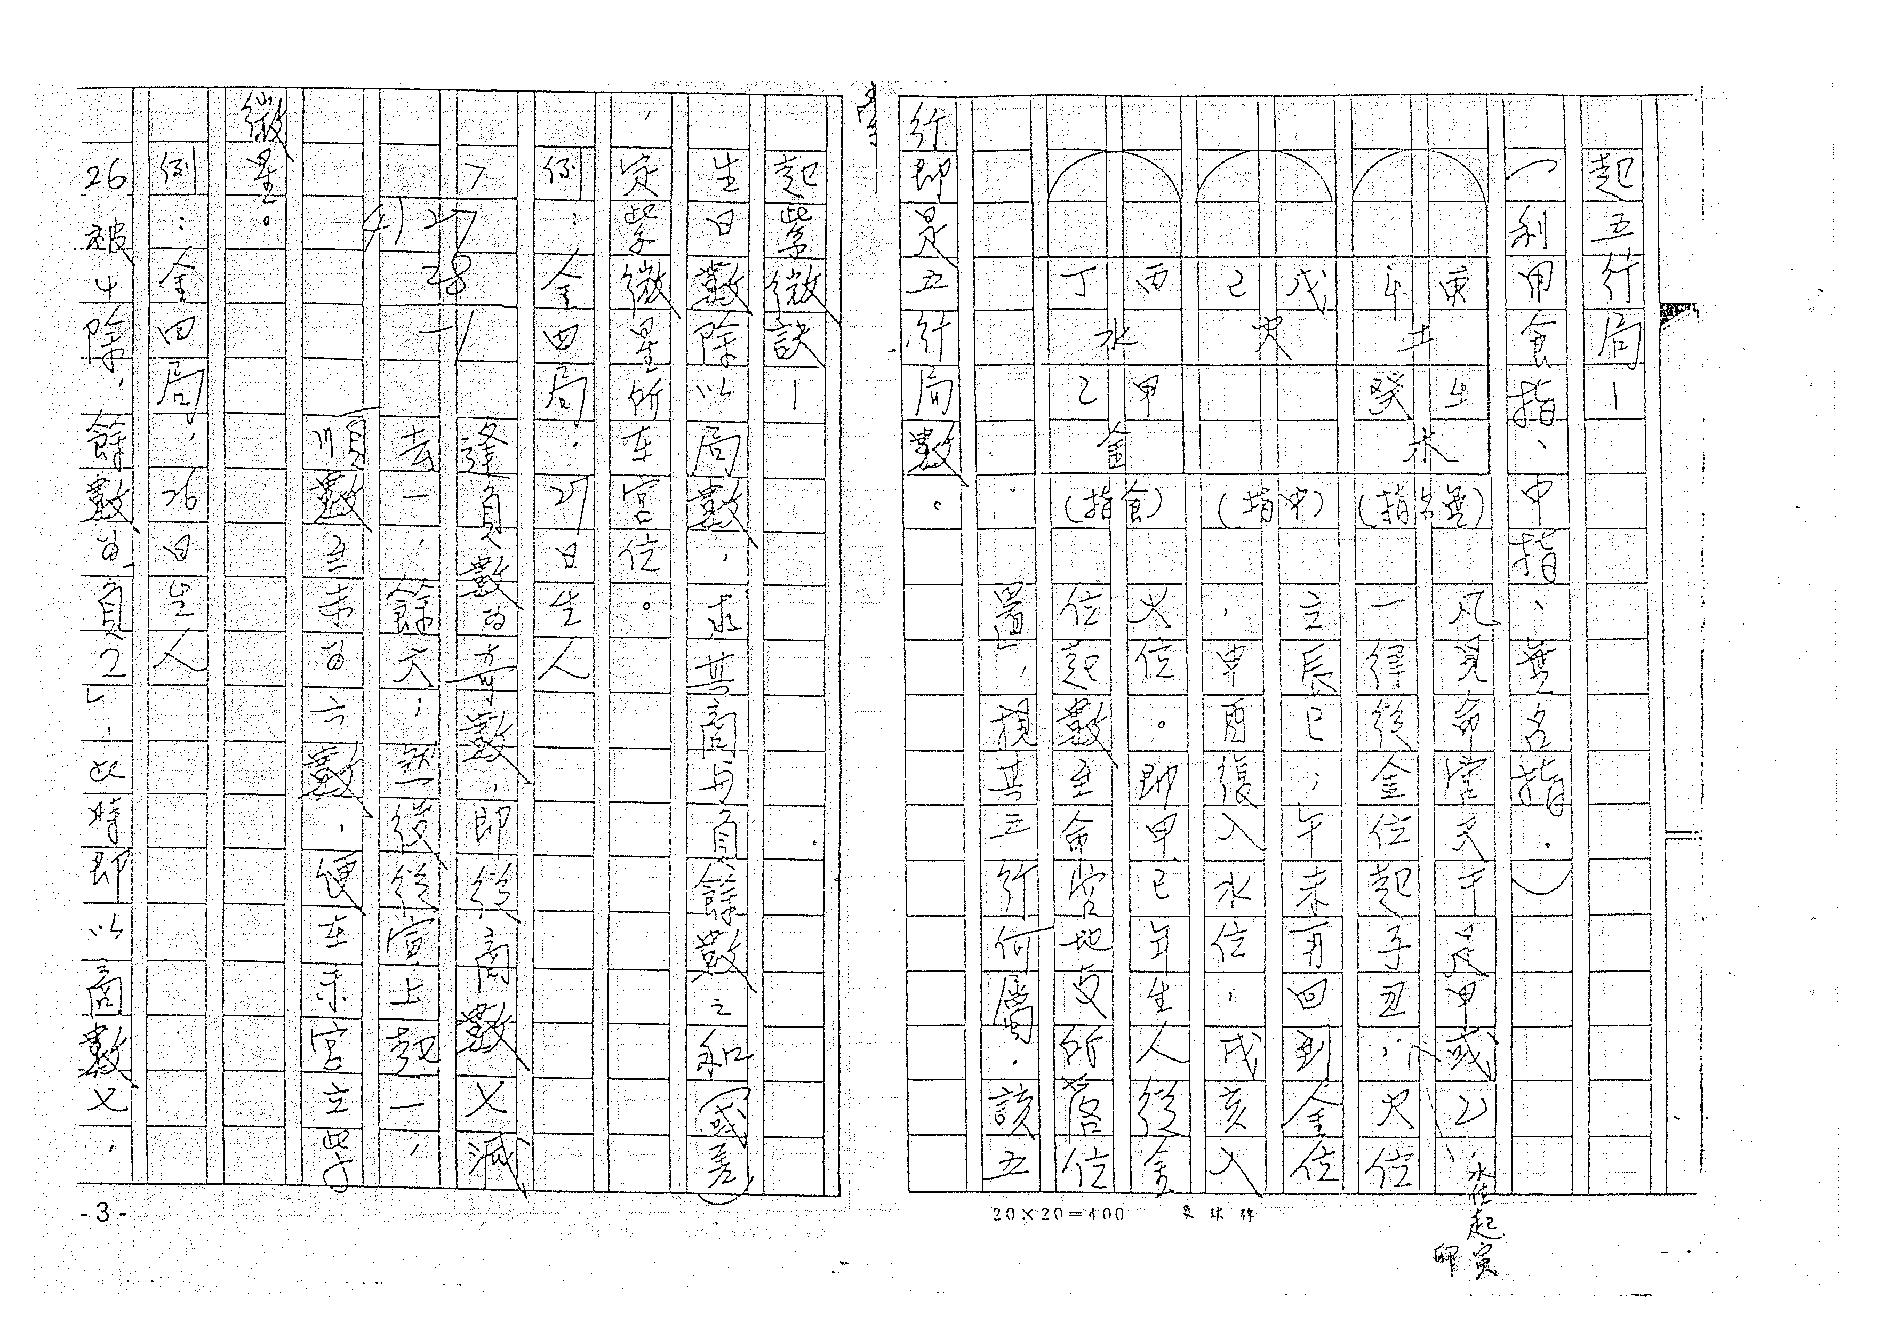 起五行局—
(利用食指、中指、無名指。)
庚 辛 土
戊 己 火
丙 丁 水
癸 木
甲 乙 金
(無名指)
(中指)
(食指)
凡見命宮天干是甲或乙
水位起寅卯
一律從金位起子丑,火位
立辰巳,午未再回到金位
,申酉復入水位,戌亥入
火位。即甲己年生人從金
位起數至命宮地支所落位
置,視其五行何屬。該五
行即是五行局數。
起紫微訣—
生日數除以局數,求其商與負餘數之和(或差)
定紫微星所在宮位。
例:金四局,27日生人
7
4)27
28
-1
逢負數為奇數,即從商數7減
去一,餘六;然後從寅上起一,
順數至未為六數,便在未宮立紫
微星。
例:金四局,26日生人
26被4除,餘數為負2,此時即以商數7,
20×20=400
-3-